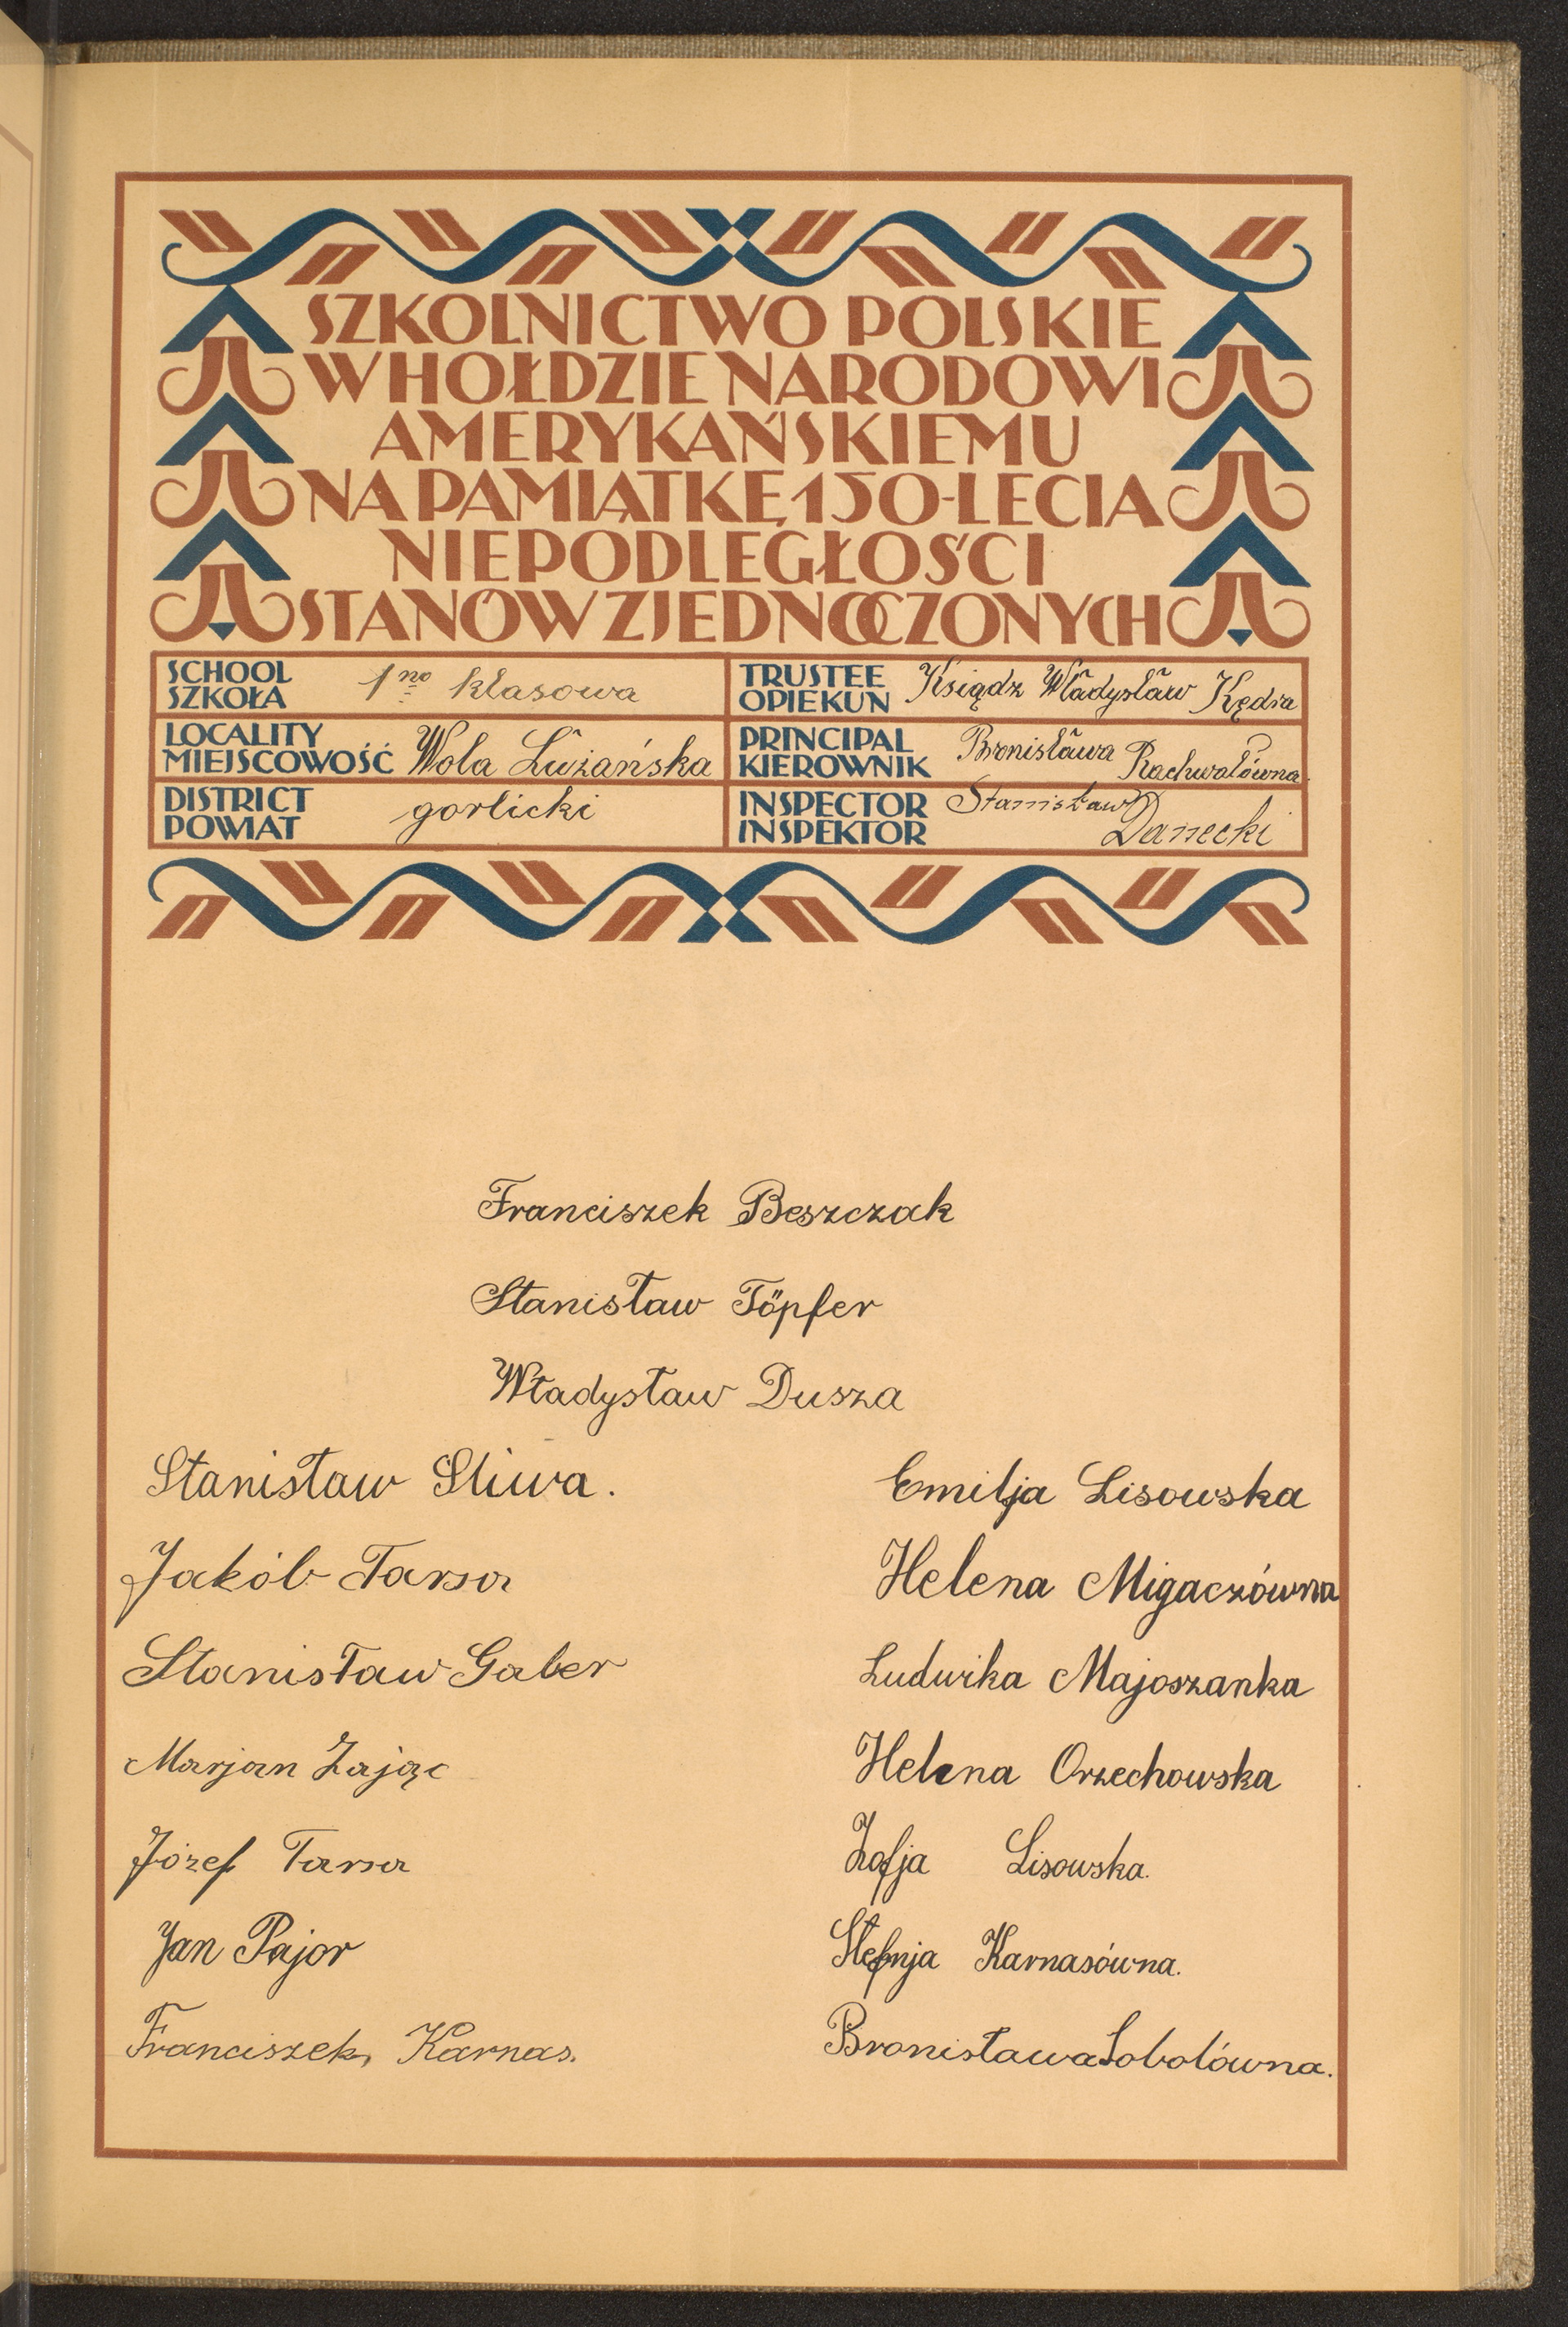 SZKOLNICTWO POLSKIE
W HOŁDZIE NARODOWI
AMERYKAŃSKIEMU
NA PAMIĄTKĘ 150-LECIA
NIEPODLEGŁOŚCI
STANÓW ZJEDNOCZONYCH
SCHOOL
SZKOŁA
1no klasowa
TRUSTEE
OPIEKUN
Ksiądz Władysław Kędra
LOCALITY
MIEJSCOWOŚĆ
Wola Łużańska
PRINCIPAL
KIEROWNIK
Bronisława Rachwałówna
DISTRICT
POWIAT
gorlicki
INSPECTOR
INSPEKTOR
Stanisław
Danecki
Franciszek Beszczak
Stanisław Töpfer
Władysław Dusza
Stanisław Śliwa.
Jakób Tarsa
Stanisław Gaber
Marjan Zając
Józef Tarsa
Jan Pajor
Franciszek Karnas.
Emilja Lisowska
Helena Migaczówna
Ludwika Majoszanka
Helena Orzechowska
Zofja Lisowska.
Stefnja Karnasówna.
Bronisława Sobolówna.